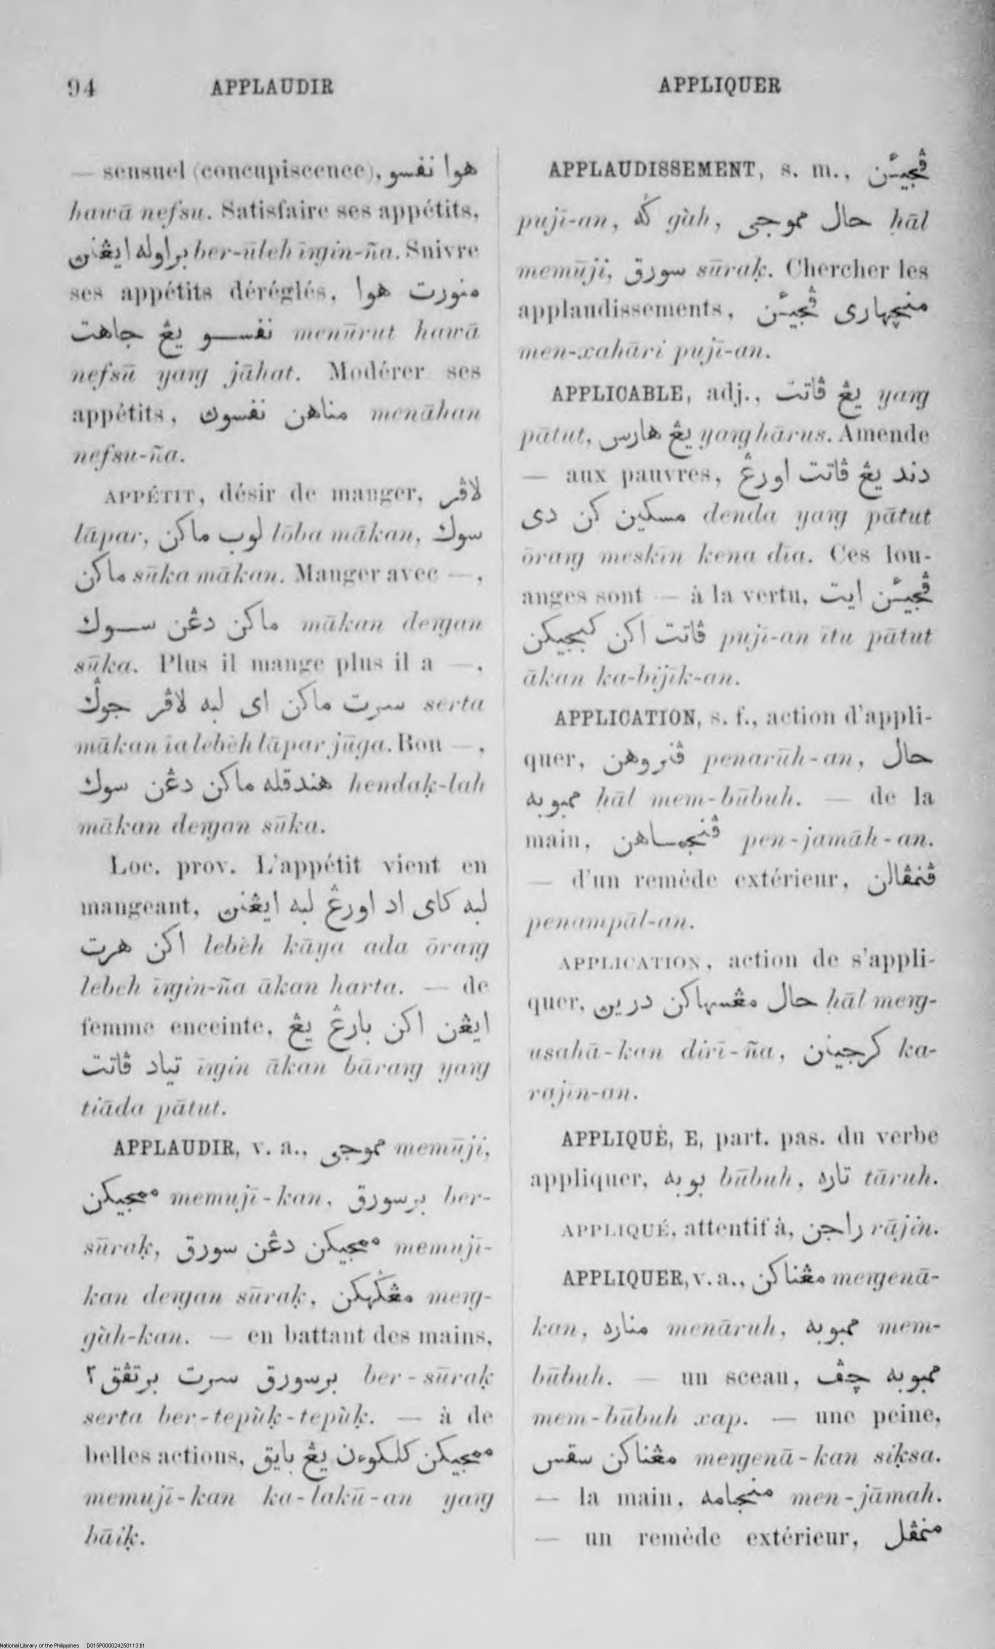 94 APPLAUDIR APPLIQUER
— sensuel (concupiscence), هوا نفسو
hawā nefsu. Satisfaire ses appétits,
براوله ايڠنڽ ber-ūleh īngin-ña. Suivre
ses appétits déréglés, منورت هوا
نفسو يڠ جاهت menūrut hawā
nefsū yang jāhat. Modérer ses
appétits, مناهن نفسوڽ menāhan
nefsu-ña.
APPÉTIT, désir de manger, لاڤر
lāpar, لوب ماكن lōba mākan, سوك
ماكن sūka mākan. Manger avec —,
ماكن دڠن سوك mākan dengan
sūka. Plus il mange plus il a —,
سرت ماكن اى لبه لاڤر جوݢ serta
mākan īa lebèh lāpar jūga. Bon —,
هندقله ماكن دڠن سوك hendaḳ-lah
mākan dengan sūka.
Loc. prov. L'appétit vient en
mangeant, لبه كاى اد اورڠ لبه ايڠنڽ
اكن هرت lebèh kāya ada ōrang
lebeh īngin-ña ākan harta. — de
femme enceinte, ايڠن اكن بارڠ يڠ
تياد ڤاتت īngin ākan bārang yang
tiāda pātut.
APPLAUDIR, v. a., مموجى memūji,
ممجيكن memuji-kan, برسورق ber-
sūraḳ, ممجيكن دڠن سورق memuji-
kan dengan sūraḳ, مڠݢهكن meng-
gùh-kan. — en battant des mains,
برسورق سرت برتڤق ٢ ber-sūraḳ
serta ber-tepùḳ-tepùḳ. — à de
belles actions, ممجيكن كلكوءن يڠ بايق
memuji-kan ka-lakū-an yang
bāiḳ.
APPLAUDISSEMENT, s. m., ڤجيئن
puji-an, ݢه gùh, حال مموجى hāl
memūji, سورق sūraḳ. Chercher les
applaudissements, منچهارى ڤجيئن
men-xahāri puji-an.
APPLICABLE, adj., يڠ ڤاتت yang
pātut, يڠ هارس yang hārus. Amende
— aux pauvres, دند يڠ ڤاتت اورڠ
مسكين كن دى denda yang pātut
ōrang meskīn kena dīa. Ces lou-
anges sont — à la vertu, ڤجيئن ايت
ڤاتت اكن كبجيكن puji-an ītu pātut
ākan ka-bijīk-an.
APPLICATION, s. f., action d'appli-
quer, ڤنروهن penarūh-an, حال
ممبوبه hāl mem-būbuh. — de la
main, ڤنجماهن pen-jamāh-an.
— d'un remède extérieur, ڤنمڤالن
penampāl-an.
APPLICATION, action de s'appli-
quer, حال مڠسهاكن دريڽ hāl meng-
usahā-kan diri-ña, كرجينان ka-
rajīn-an.
APPLIQUÉ, E, part. pas. du verbe
appliquer, بوبه būbuh, تاره tāruh.
APPLIQUÉ, attentif à, راجن rājin.
APPLIQUER, v. a., مڠناكن mengenā-
kan, مناره menāruh, ممبوبه mem-
būbuh. — un sceau, ممبوبه چڤ
mem-būbuh xap. — une peine,
مڠناكن سقس mengenā-kan siḳsa.
— la main, منجامه men-jāmah.
— un remède extérieur, منمڤل
National Library of the Philippines